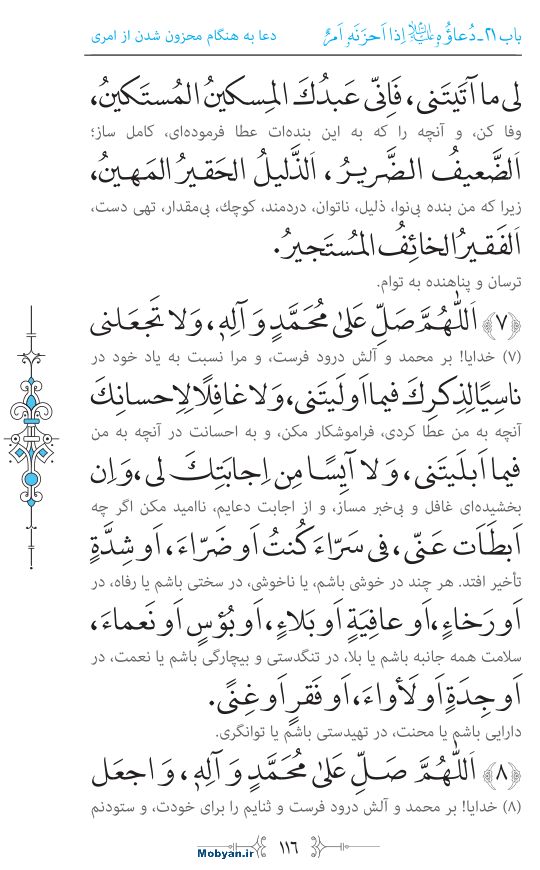 باب ۲۱ـ دُعاؤُهُ علیه‌السلام اِذا اَحزَنَهُ اَمرٌ
دعا به هنگام محزون شدن از امری
لی ما آتَیتَنی، فَاِنّی عَبدُكَ المِسكینُ المُستَكینُ،
وفا کن، و آنچه را که به این بنده‌ات عطا فرموده‌ای، کامل ساز؛
اَلضَّعیفُ الضَّریرُ، اَلذَّلیلُ الحَقیرُ المَهینُ،
زیرا که من بنده بی‌نوا، ذلیل، ناتوان، دردمند، کوچك، بی‌مقدار، تهی دست،
اَلفَقیرُ الخائِفُ المُستَجیرُ.
ترسان و پناهنده به توام.
﴿۷﴾ اَللّٰهُمَّ صَلِّ عَلیٰ مُحَمَّدٍ وَ آلِهِ، وَ لا تَجعَلنی
(۷) خدایا! بر محمد و آلش درود فرست، و مرا نسبت به یاد خود در
ناسِیًا لِذِكرِكَ فیما اَولَیتَنی، وَ لا غافِلًا لِاِحسانِكَ
آنچه به من عطا کردی، فراموشکار مکن، و به احسانت در آنچه به من
فیما اَبلَیتَنی، وَ لا آیِسًا مِن اِجابَتِكَ لی، وَ اِن
بخشیده‌ای غافل و بی‌خبر مساز، و از اجابت دعایم، ناامید مکن اگر چه
اَبطَاَت عَنّی، فی سَرّاءَ كُنتُ اَو ضَرّاءَ، اَو شِدَّةٍ
تأخیر افتد. هر چند در خوشی باشم، یا ناخوشی، در سختی باشم یا رفاه، در
اَو رَخاءٍ، اَو عافِیَةٍ اَو بَلاءٍ، اَو بُؤسٍ اَو نَعماءَ،
سلامت همه جانبه باشم یا بلا، در تنگدستی و بیچارگی باشم یا نعمت، در
اَو جِدَةٍ اَو لَأواءَ، اَو فَقرٍ اَو غِنًی.
دارایی باشم یا محنت، در تهیدستی باشم یا توانگری.
﴿۸﴾ اَللّٰهُمَّ صَلِّ عَلیٰ مُحَمَّدٍ وَ آلِهِ، وَ اجعَل
(۸) خدایا! بر محمد و آلش درود فرست و ثنایم را برای خودت، و ستودنم
۱۱۶
Mobyan.ir